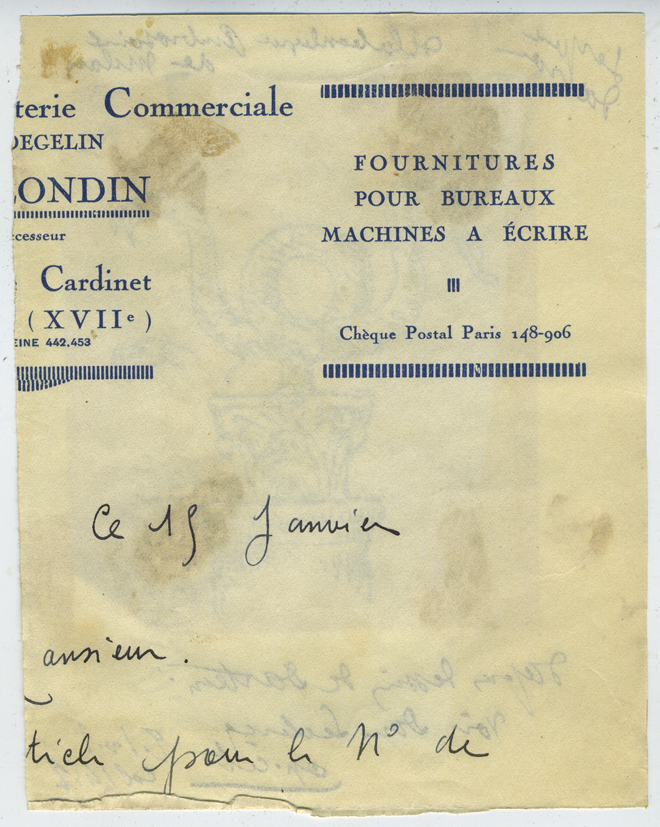 terie Commerciale
DEGELIN
LONDIN
ccesseur
Cardinet
(XVIIe)
EINE 442.453
FOURNITURES
POUR BUREAUX
MACHINES A ÉCRIRE
Chèque Postal Paris 148-906
Ce 15 Janvier
ansieur.
ticle pour le N° de